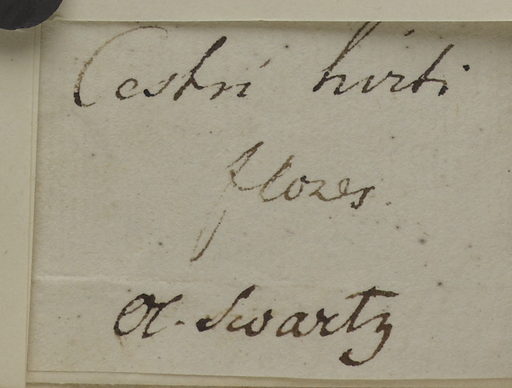 Cestri hirti
flores
Ol. Swartz